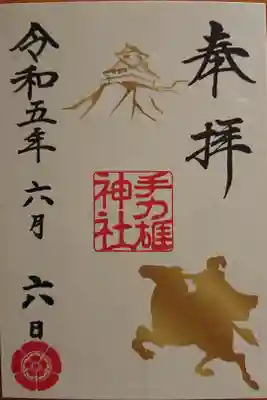 奉拝
手力雄
神社
令和五年 六月 六日